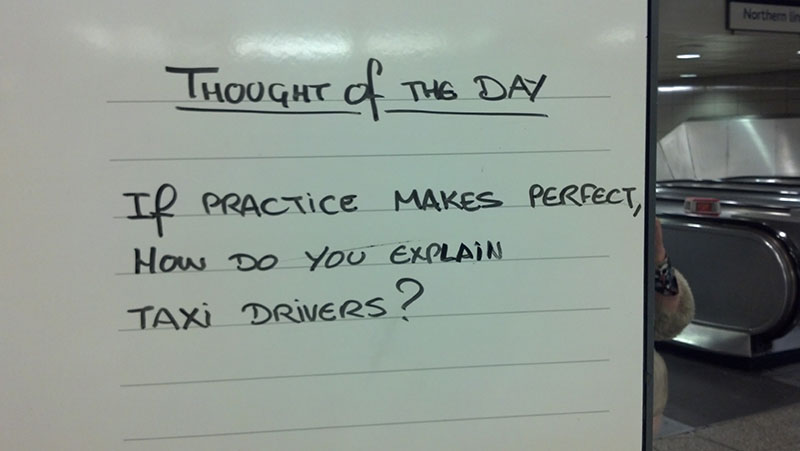 THOUGHT of THE DAY
If PRACTICE MAKES PERFECT,
HOW DO YOU EXPLAIN
TAXi DRiVERS?
Northern lin